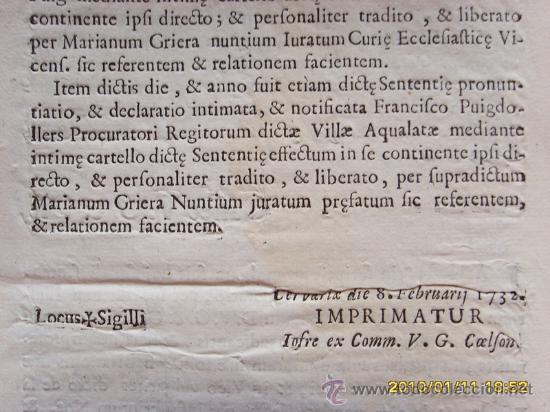 continente ipsi directo; & personaliter tradito, & liberato
per Marianum Griera nuntium Iuratum Curię Ecclesiasticę Vi-
cens. sic referentem & relationem facientem.
Item dictis die, & anno fuit etiam dictę Sententię pronun-
tiatio, & declaratio intimata, & notificata Francisco Puigdo-
llers Procuratori Regitorum dictæ Villæ Aqualatæ mediante
intimę cartello dictę Sententię effectum in se continente ipsi di-
recto, & personaliter tradito, & liberato, per supradictum
Marianum Griera Nuntium juratum pręfatum sic referentem,
& relationem facientem.
Cervariæ die 8. Februarij 1732.
Locus ✠ Sigilli
IMPRIMATUR
Iofre ex Comm. V. G. Cœlson.
2010/01/11 18:52
todocoleccion.net